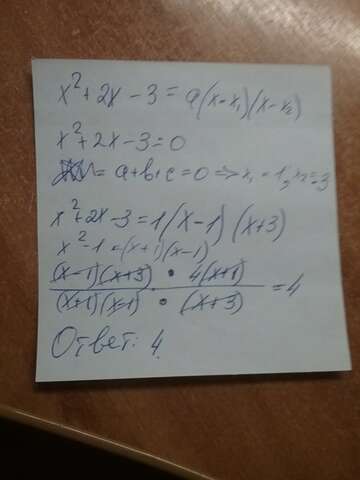 x² + 2x - 3 = a(x - x₁)(x - x₂)
x² + 2x - 3 = 0
= a + b + c = 0 => x₁ = 1, x₂ = -3
x² + 2x - 3 = 1(x - 1)(x + 3)
x² - 1 = (x + 1)(x - 1)
(x - 1)(x + 3) · 4(x + 1)
(x + 1)(x - 1) · (x + 3) = 4
Ответ: 4